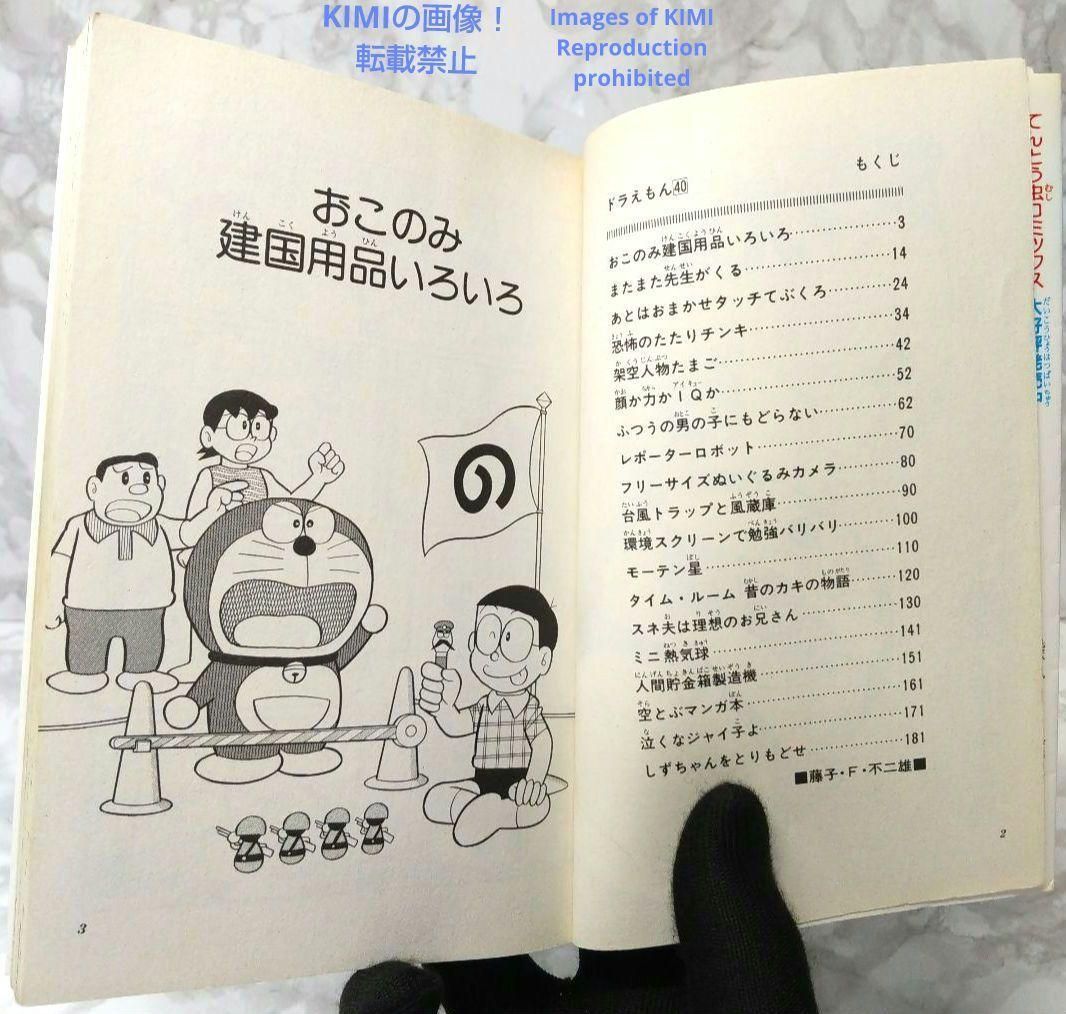 KIMIの画像！
転載禁止
Images of KIMI
Reproduction
prohibited
ドラえもん40
もくじ
おこのみ建国用品いろいろ 3
またまた先生がくる 14
あとはおまかせタッチてぶくろ 24
恐怖のたたりチンキ 34
架空人物たまご 42
顔か力かIQか 52
ふつうの男の子にもどらない 62
レポーターロボット 70
フリーサイズぬいぐるみカメラ 80
台風トラップと風蔵庫 90
環境スクリーンで勉強バリバリ 100
モーテン星 110
タイム・ルーム 昔のカキの物語 120
スネ夫は理想のお兄さん 130
ミニ熱気球 141
人間貯金箱製造機 151
空とぶマンガ本 161
泣くなジャイ子よ 171
しずちゃんをとりもどせ 181
■藤子・F・不二雄■
2
おこのみ
建国用品いろいろ
の
3
てんとう虫コミックス